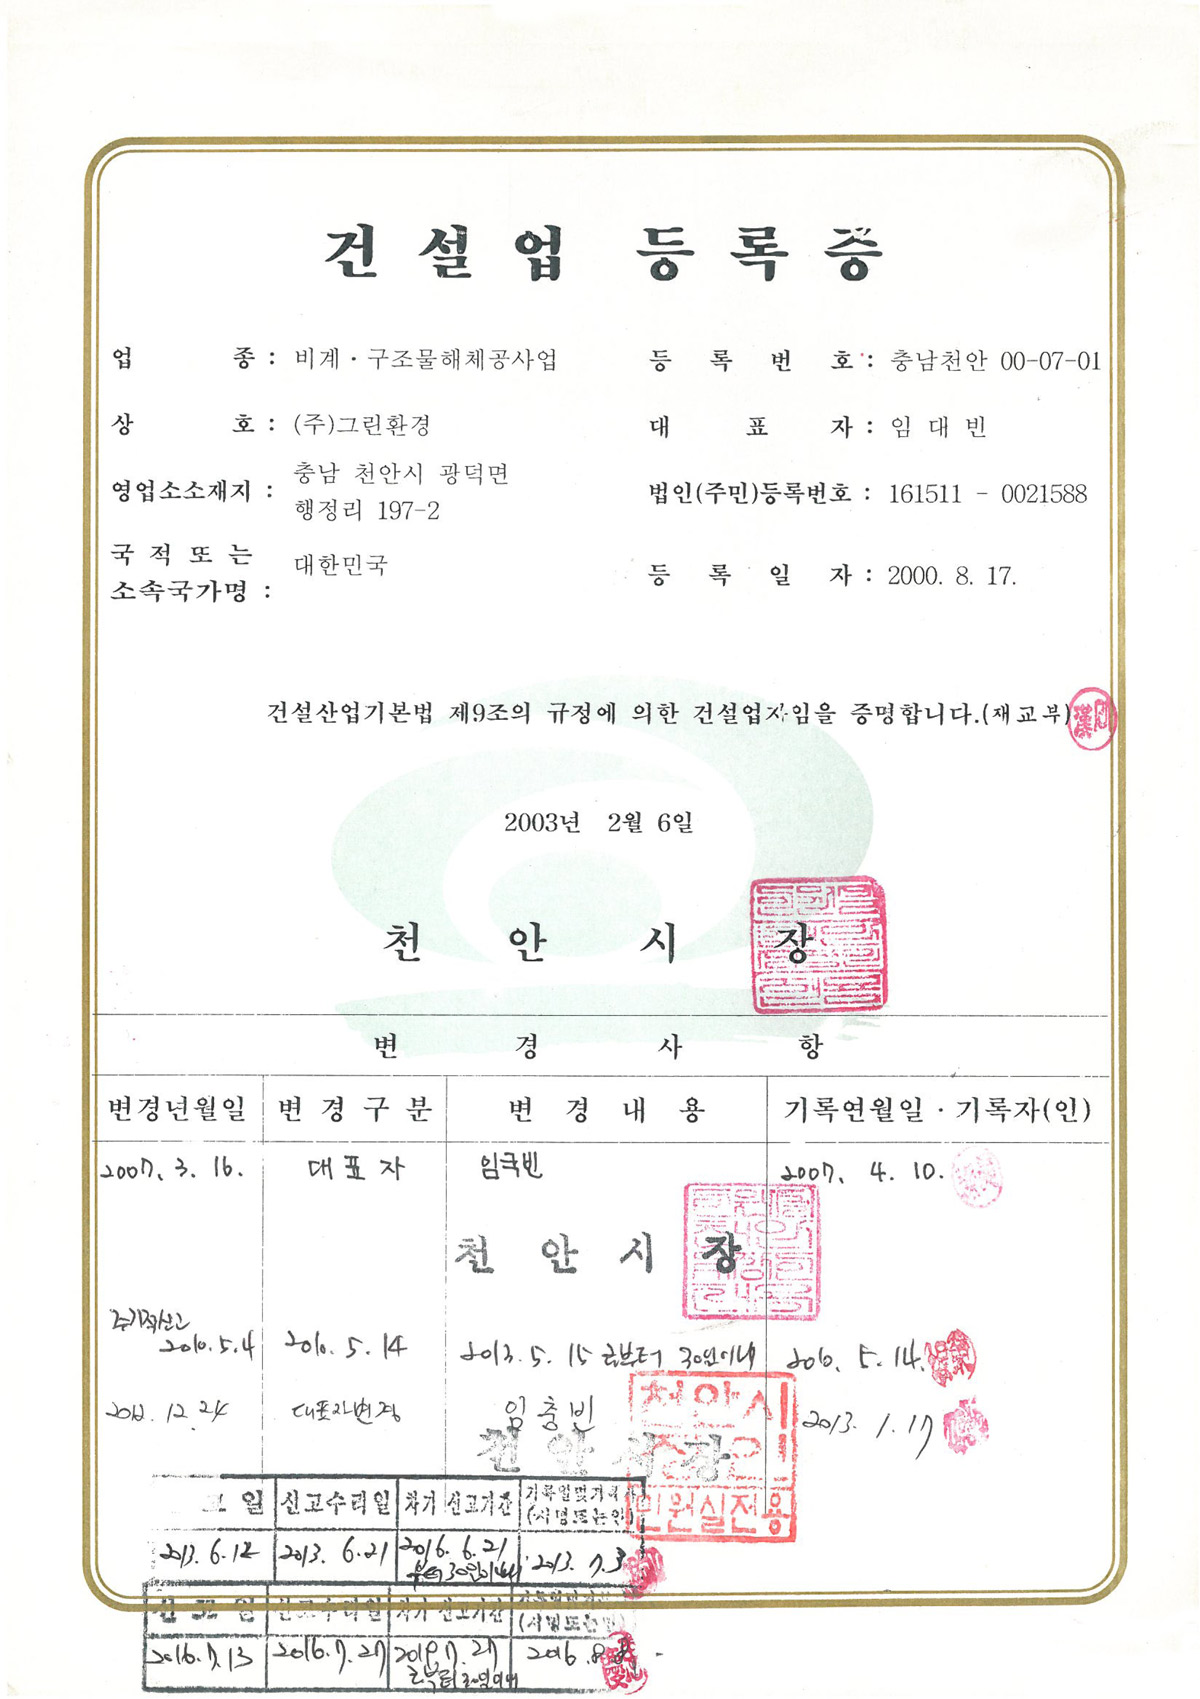 건설업 등록증
업 종 : 비계·구조물해체공사업
등 록 번 호 : 충남천안 00-07-01
상 호 : (주)그린환경
대 표 자 : 임 대 빈
영업소소재지 : 충남 천안시 광덕면
행정리 197-2
법인(주민)등록번호 : 161511 - 0021588
국 적 또 는
소속국가명 : 대한민국
등 록 일 자 : 2000. 8. 17.
건설산업기본법 제9조의 규정에 의한 건설업자임을 증명합니다.(재교부)
2003년 2월 6일
천 안 시 장
변 경 사 항
변경년월일 변 경 구 분 변 경 내 용 기록연월일·기록자(인)
2007. 3. 16. 대 표 자 임국빈 2007. 4. 10.
천 안 시 장
주기적신고
2010. 5. 4 2010. 5. 14 2013. 5. 15 로부터 30일이내 2010. 5. 14.
2012. 12. 24 대표자변경 임충빈 2013. 1. 17
천 안 시 장
천안시
민원실전용
고 일 신고수리일 차기 신고기간 기록일및기록자
(서명또는인)
2013. 6. 12 2013. 6. 21 2016. 6. 21
부터 30일이내 2013. 7. 3
신 고 일 신고수리일 차기 신고기간
(서명또는인)
2016. 7. 13 2016. 7. 27 2019. 7. 27
로부터 30일이내 2016. 8.